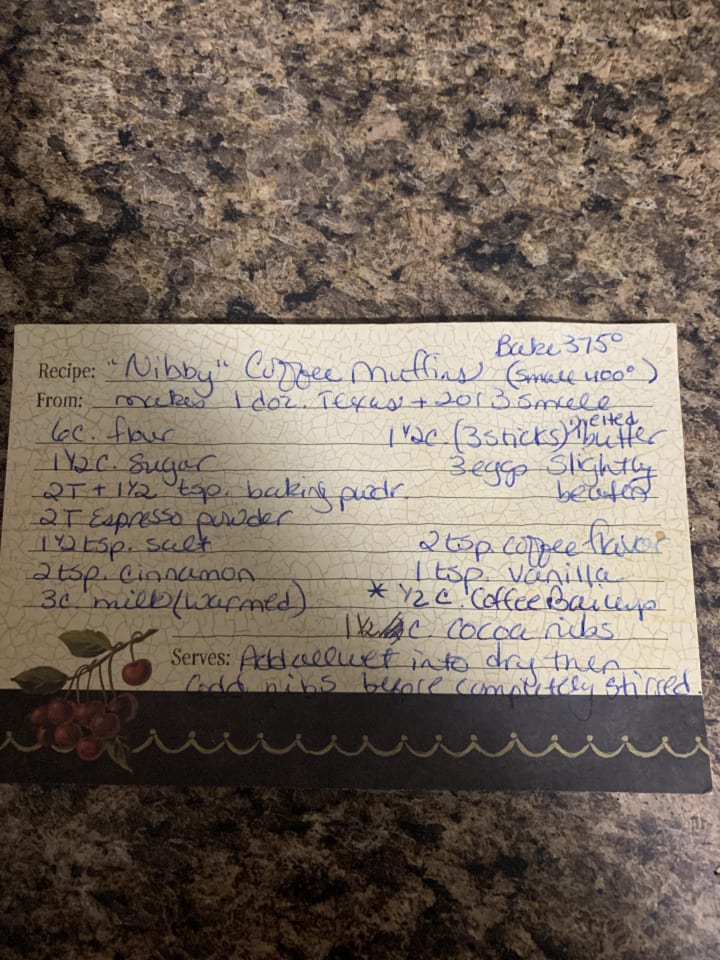 Bake 375°
Recipe: "Nibby" Coffee Muffins (small 400°)
From: makes 1 doz. Texas + 2 or 3 small
6c. flour
1 1/2 c. (3 sticks) melted butter
1 1/2 c. sugar
3 eggs slightly beaten
2T + 1 1/2 tsp. baking pwdr.
2T Espresso powder
1 1/2 tsp. salt
2 tsp. coffee flavor
2 tsp. cinnamon
1 tsp. vanilla
3c. milk (warmed)
* 1/2 c. Coffee
c. cocoa nibs
Serves: Add all wet into dry then
add nibs before completely stirred.